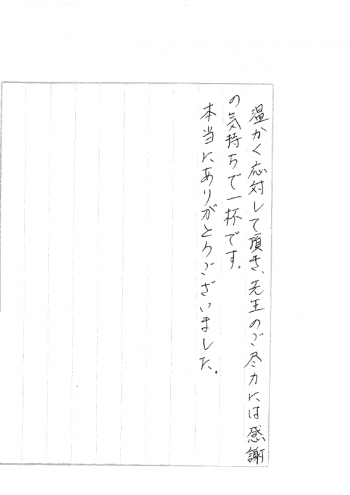 温かく応対して頂き、先生のご尽力には感謝
の気持ちで一杯です。
本当にありがとうございました。